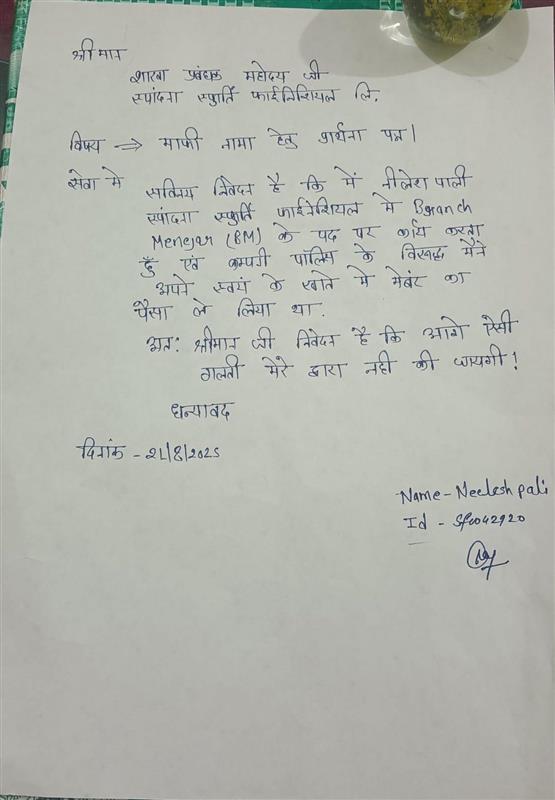 श्रीमान
शाखा प्रबंधक महोदय जी
स्पांदना स्फुर्ति फाईनेंशियल लि.
विषय ⇒ माफी नामा हेतु प्रार्थना पत्र।
सेवा में
सविनय निवेदन है कि में नीलेश पाली
स्पांदना स्फुर्ति फाईनेशियल मे Branch
Menejar (BM) के पद पर कार्य करता
हुँ एवं कम्पनी पॉलिस के विरूद्ध मैने
अपने स्वयं के खाते मे मेबंर का
पैसा ले लिया था.
अतः श्रीमान जी निवेदन है कि आगे ऐसी
गलती मेरे द्वारा नही की जायगी!
धन्यावद
दिनांक - 21/8/2025
Name - Neelesh pali
Id - Sf0042920